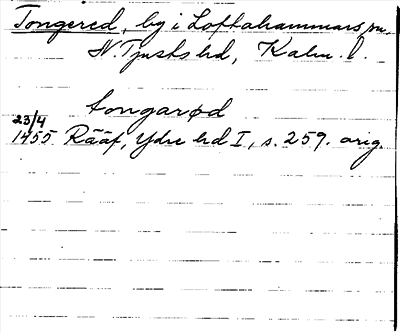 Tongered, by i Loftahammars sn.
N. Tjusts hd, Kalm. l.
tongarød
23/4
1455 Rääf, Ydre hd I, s. 259. orig.